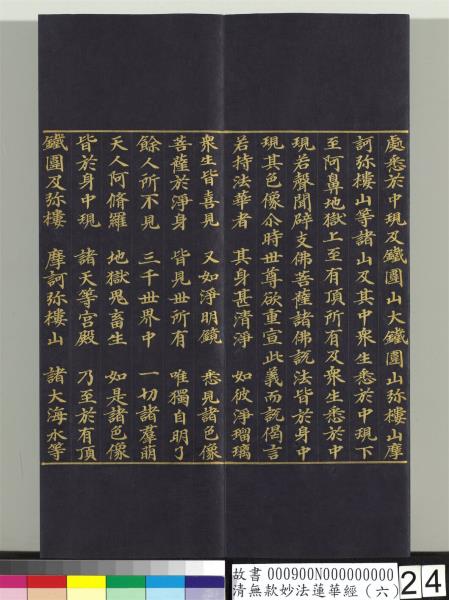 處悉於中現及鐵圍山大鐵圍山弥樓山摩
訶弥樓山等諸山及其中衆生悉於中現下
至阿鼻地獄上至有頂所有及衆生悉於中
現若聲聞辟支佛菩薩諸佛說法皆於身中
現其色像尒時世尊欲重宣此義而說偈言
若持法華者 其身甚清淨 如彼淨瑠璃
衆生皆喜見 又如淨明鏡 悉見諸色像
菩薩於淨身 皆見世所有 唯獨自明了
餘人所不見 三千世界中 一切諸羣萌
天人阿脩羅 地獄鬼畜生 如是諸色像
皆於身中現 諸天等宮殿 乃至於有頂
鐵圍及弥樓 摩訶弥樓山 諸大海水等
故書 000900N000000000
清無款妙法蓮華經（六）
24